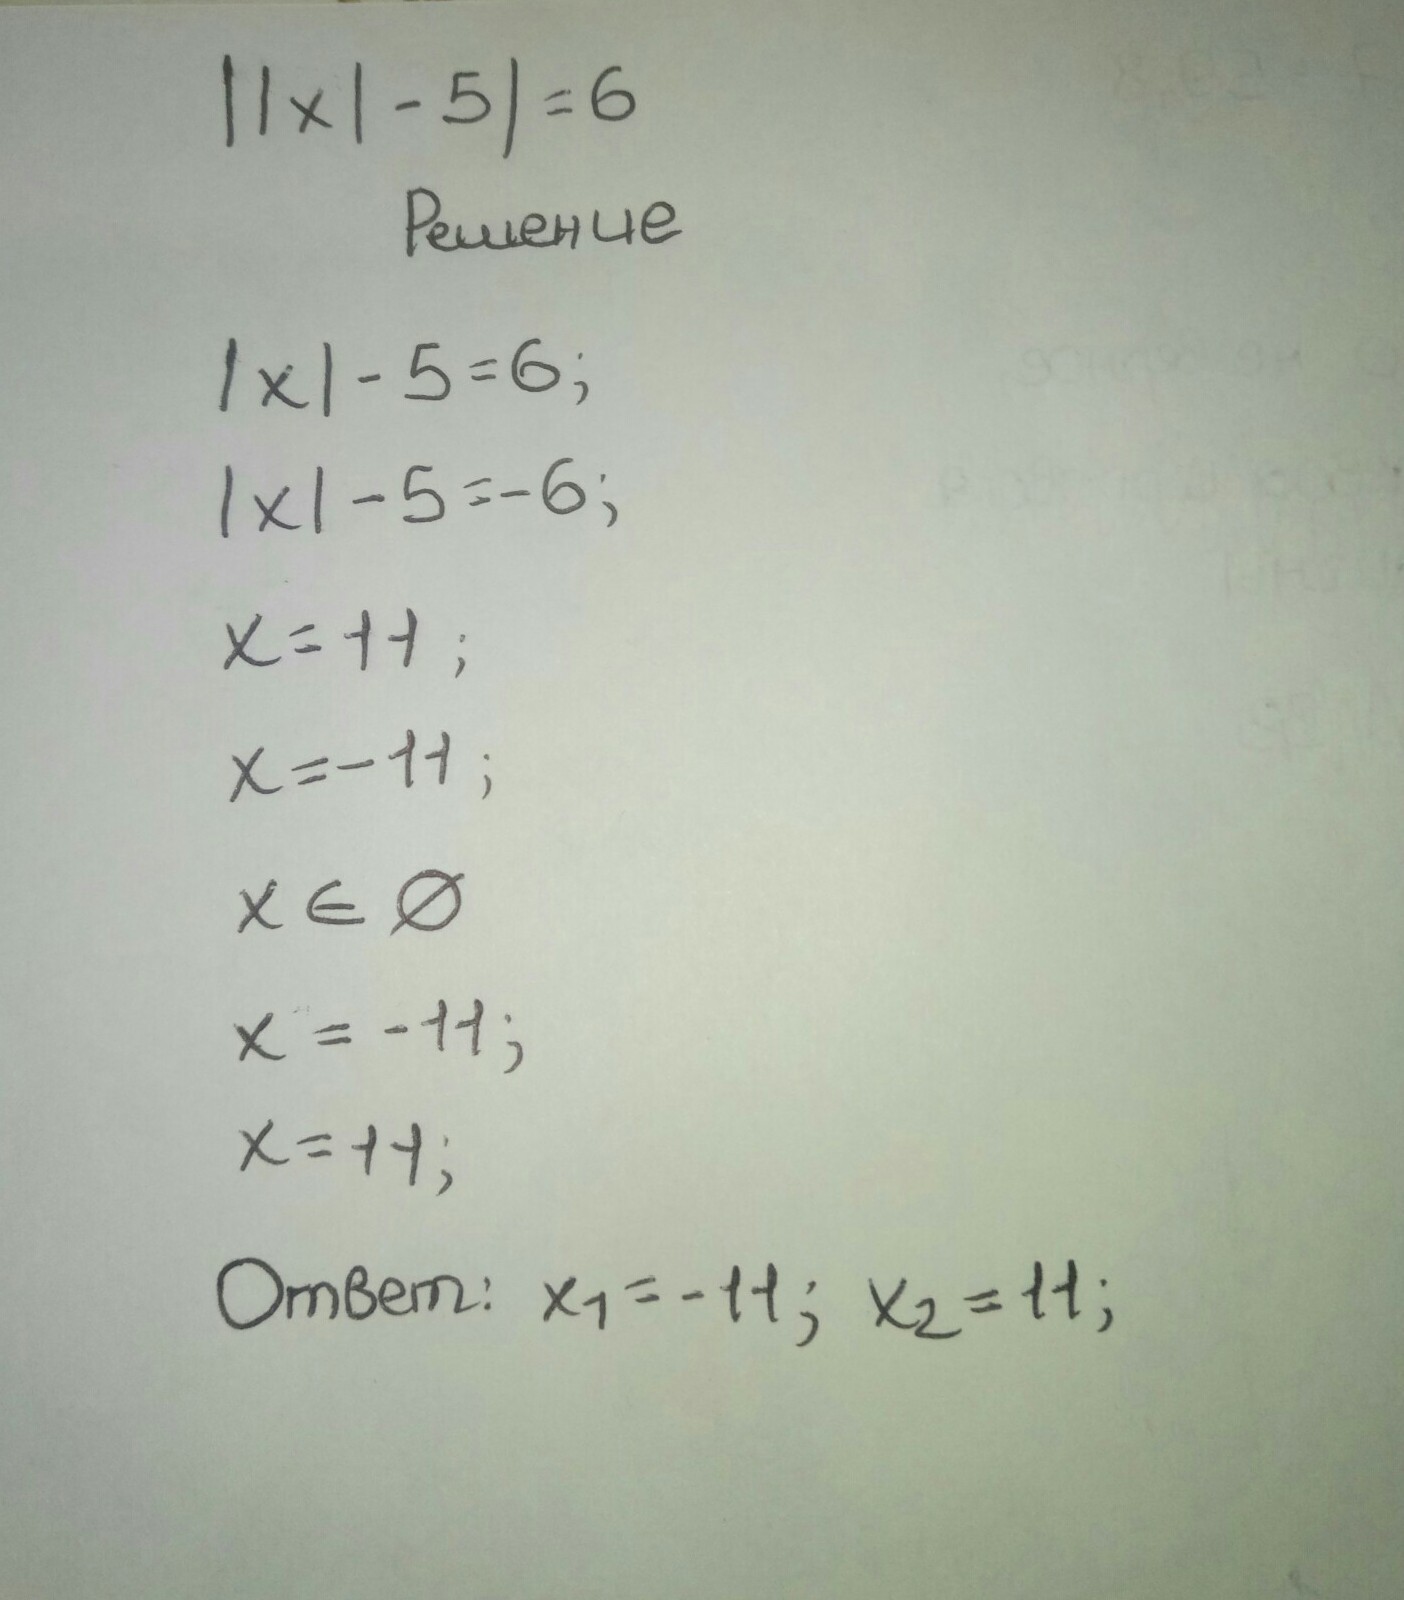 ||x|-5|=6
Решение
|x|-5=6;
|x|-5=-6;
x=11;
x=-11;
x∈∅
x=-11;
x=11;
Ответ: x₁=-11; x₂=11;